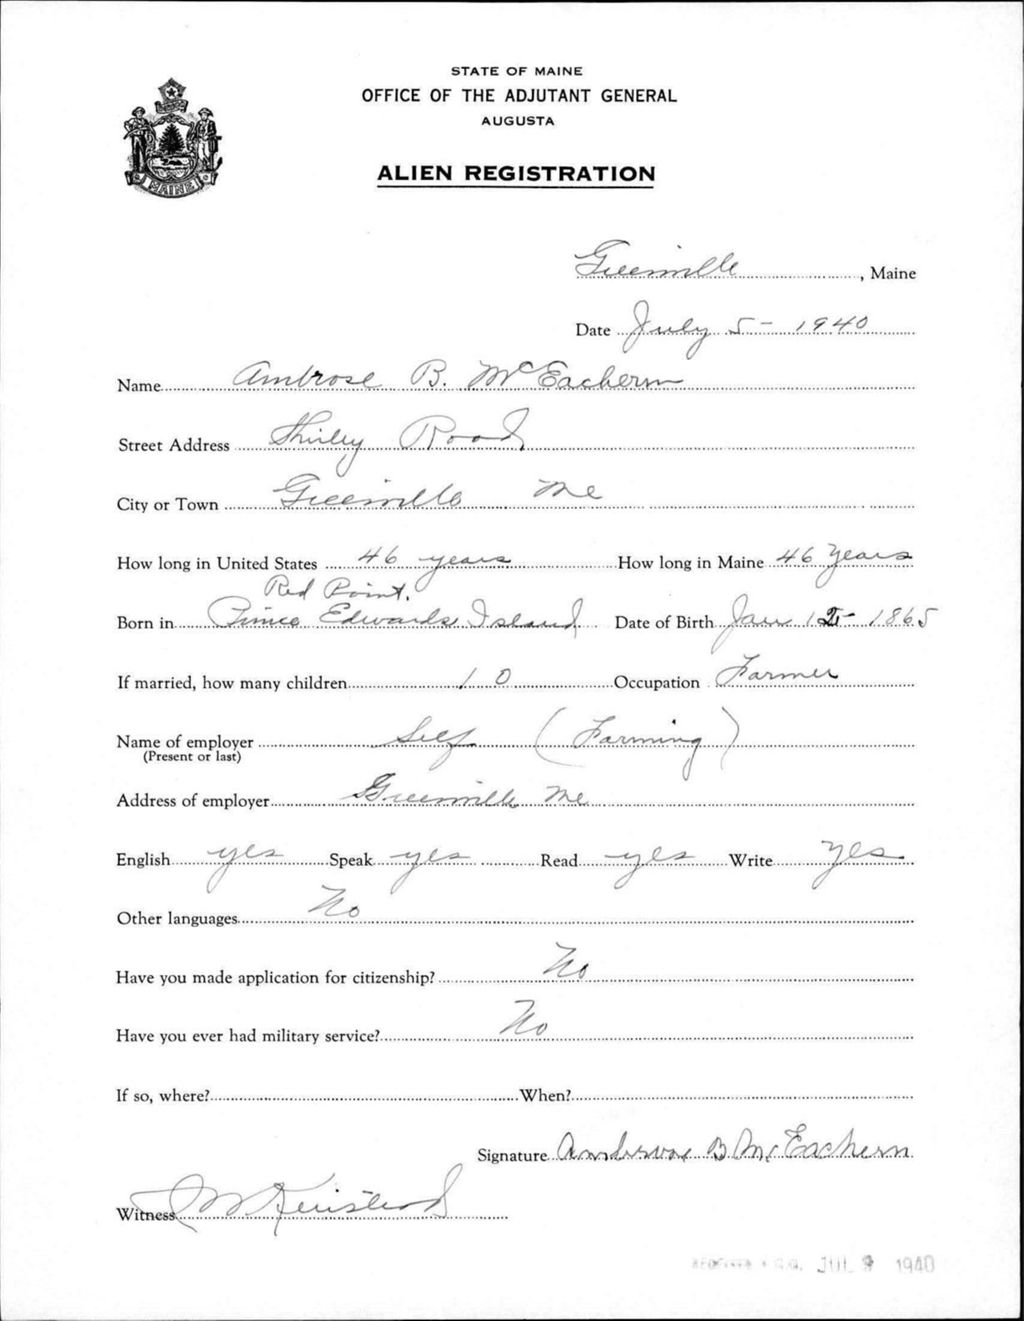 STATE OF MAINE
OFFICE OF THE ADJUTANT GENERAL
AUGUSTA
MAINE
ALIEN REGISTRATION
Greenville, Maine
Date July 5 - 1940
Name Ambrose B. McEachern
Street Address Shirley Road
City or Town Greenville Me
How long in United States 46 years How long in Maine 46 Years
Red Point.
Born in Prince Edwards Island Date of Birth Jan 1865
If married, how many children 10 Occupation Farmer
Name of employer Self (Farming)
(Present or last)
Address of employer Greenville Me
English yes Speak yes Read yes Write Yes
Other languages No
Have you made application for citizenship? No
Have you ever had military service? No
If so, where? When?
Signature Ambrose B McEachern
Witness
JUL 9 1940